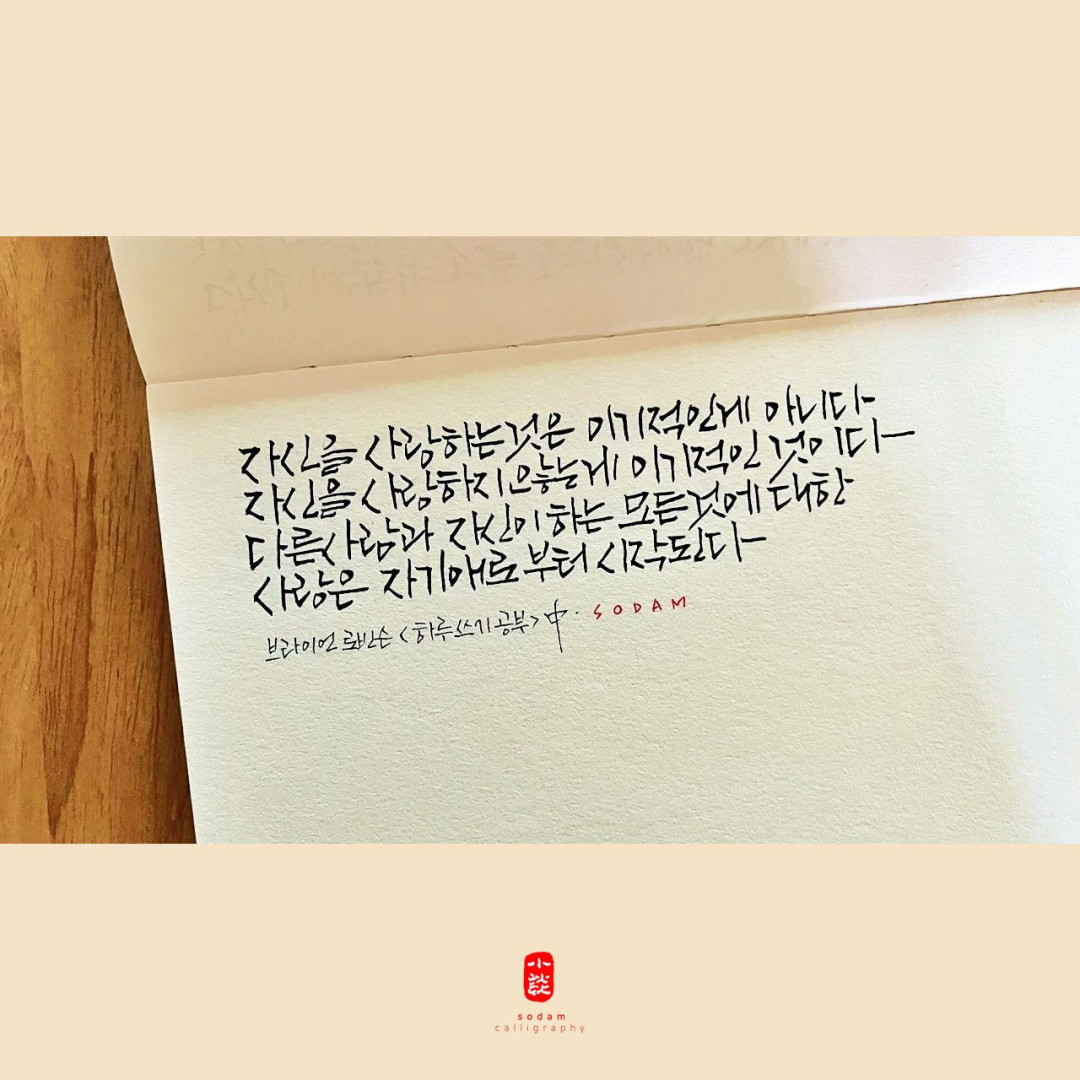 자신을 사랑하는것은 이기적인게 아니다
자신을 사랑하지않는게 이기적인 것이다
다른사람과 자신이 하는 모든것에 대한
사랑은 자기애로부터 시작된다
브라이언 로빈슨 <하루 쓰기 공부> 中. SODAM
小談
sodam
calligraphy